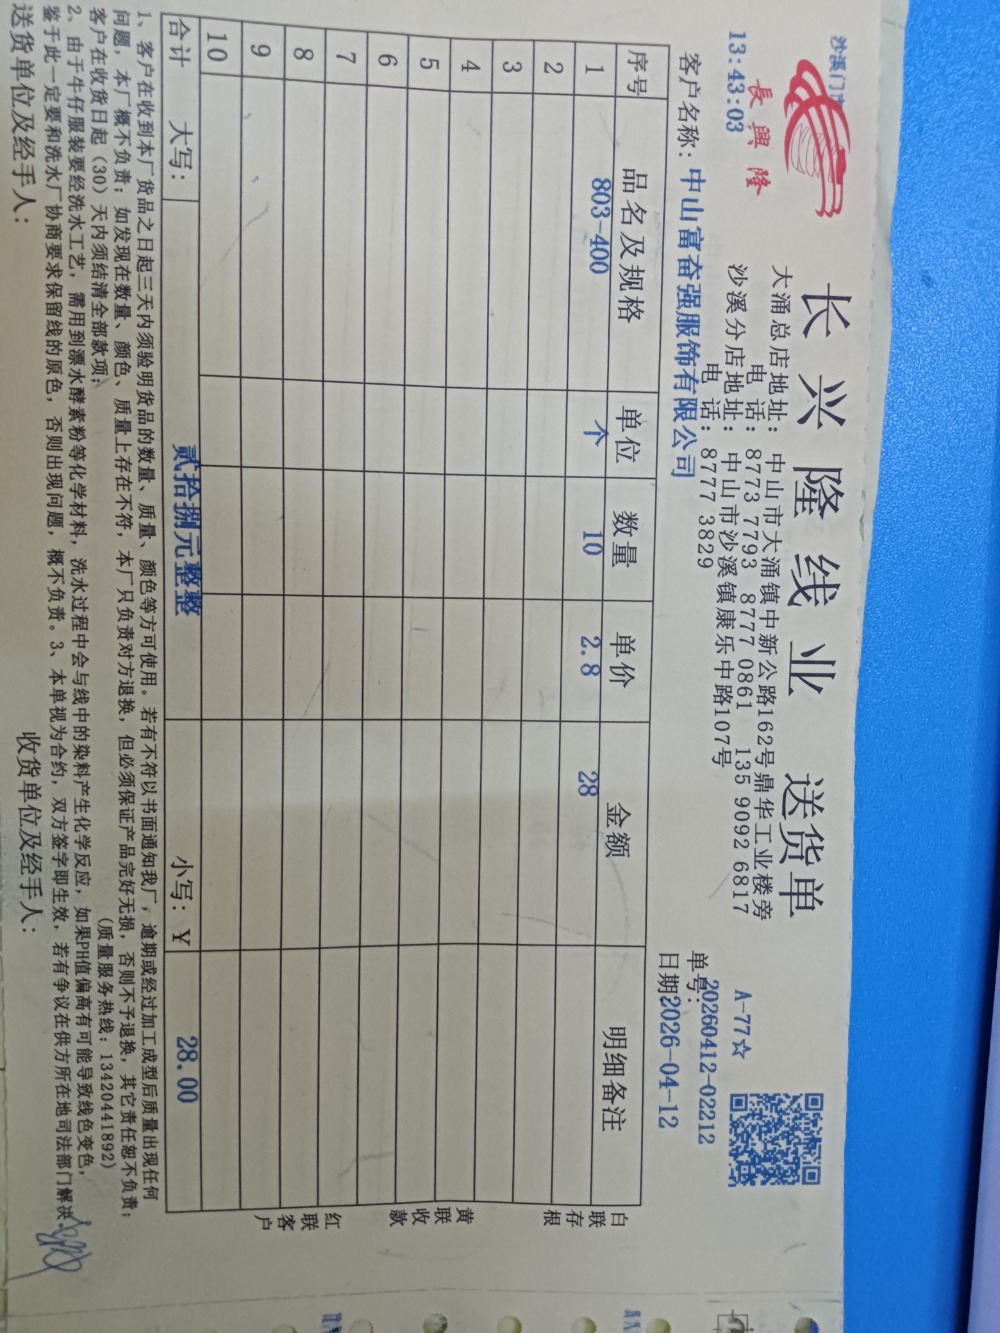 沙溪门市
13:43:03
長興隆
长兴隆线业 送货单
大涌总店地址: 中山市大涌镇中新公路162号鼎华工业楼旁
电 话: 8773 7793 8777 0861 135 9092 6817
沙溪分店地址: 中山市沙溪镇康乐中路107号
电 话: 8777 3829
A-77☆
单号: 20260412-02212
客户名称: 中山富奋强服饰有限公司
日期 2026-04-12
序号 品名及规格 单位 数量 单价 金额 明细备注
1 803-400 个 10 2.8 28
2
3
4
5
6
7
8
9
10
合计 大写: 贰拾捌元整整 小写: ¥ 28.00
白联存根
黄联收款
红联客户
1、客户在收到本厂货品之日起三天内须验明货品的数量、质量、颜色等方可使用。若有不符以书面通知我厂,逾期或经过加工成型后质量出现任何
问题,本厂概不负责;如发现在数量、颜色、质量上存在不符,本厂只负责对方退换,但必须保证产品完好无损,否则不予退换,其它责任恕不负责;
客户在收货日起(30)天内须结清全部款项; (质量服务热线:13420441892)
2、由于牛仔服装要经洗水工艺,需用到漂水酵素粉等化学材料,洗水过程中会与线中的染料产生化学反应,如果PH值偏高有可能导致线色变色,
鉴于此一定要和洗水厂协商要求保留线的原色,否则出现问题,概不负责。3、本单视为合约,双方签字即生效,若有争议在供方所在地司法部门解决。
送货单位及经手人: 收货单位及经手人: